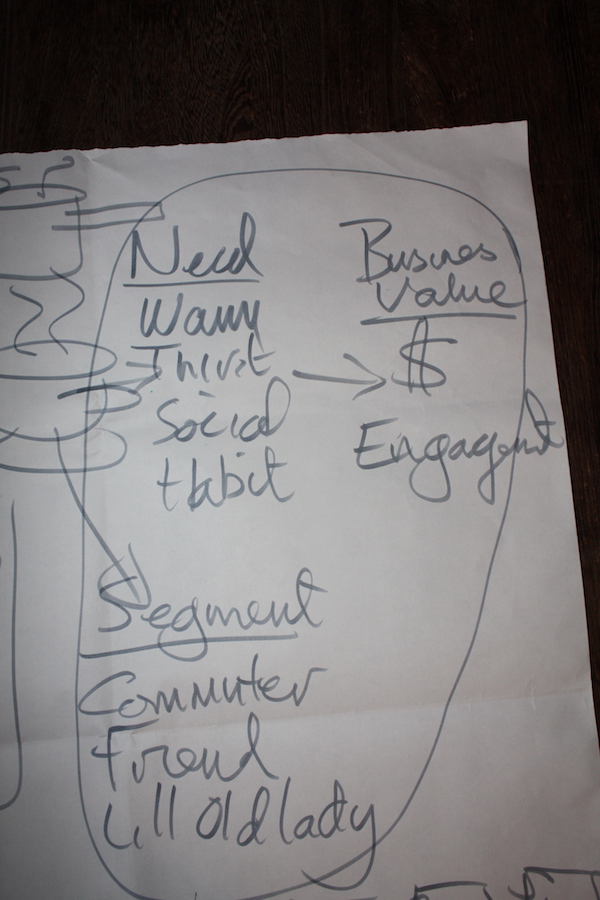 Need
Warm
Thirst
Social
Habit
Busines
Value
$
Engagent
Segment
Commuter
Freend
Lill Old lady